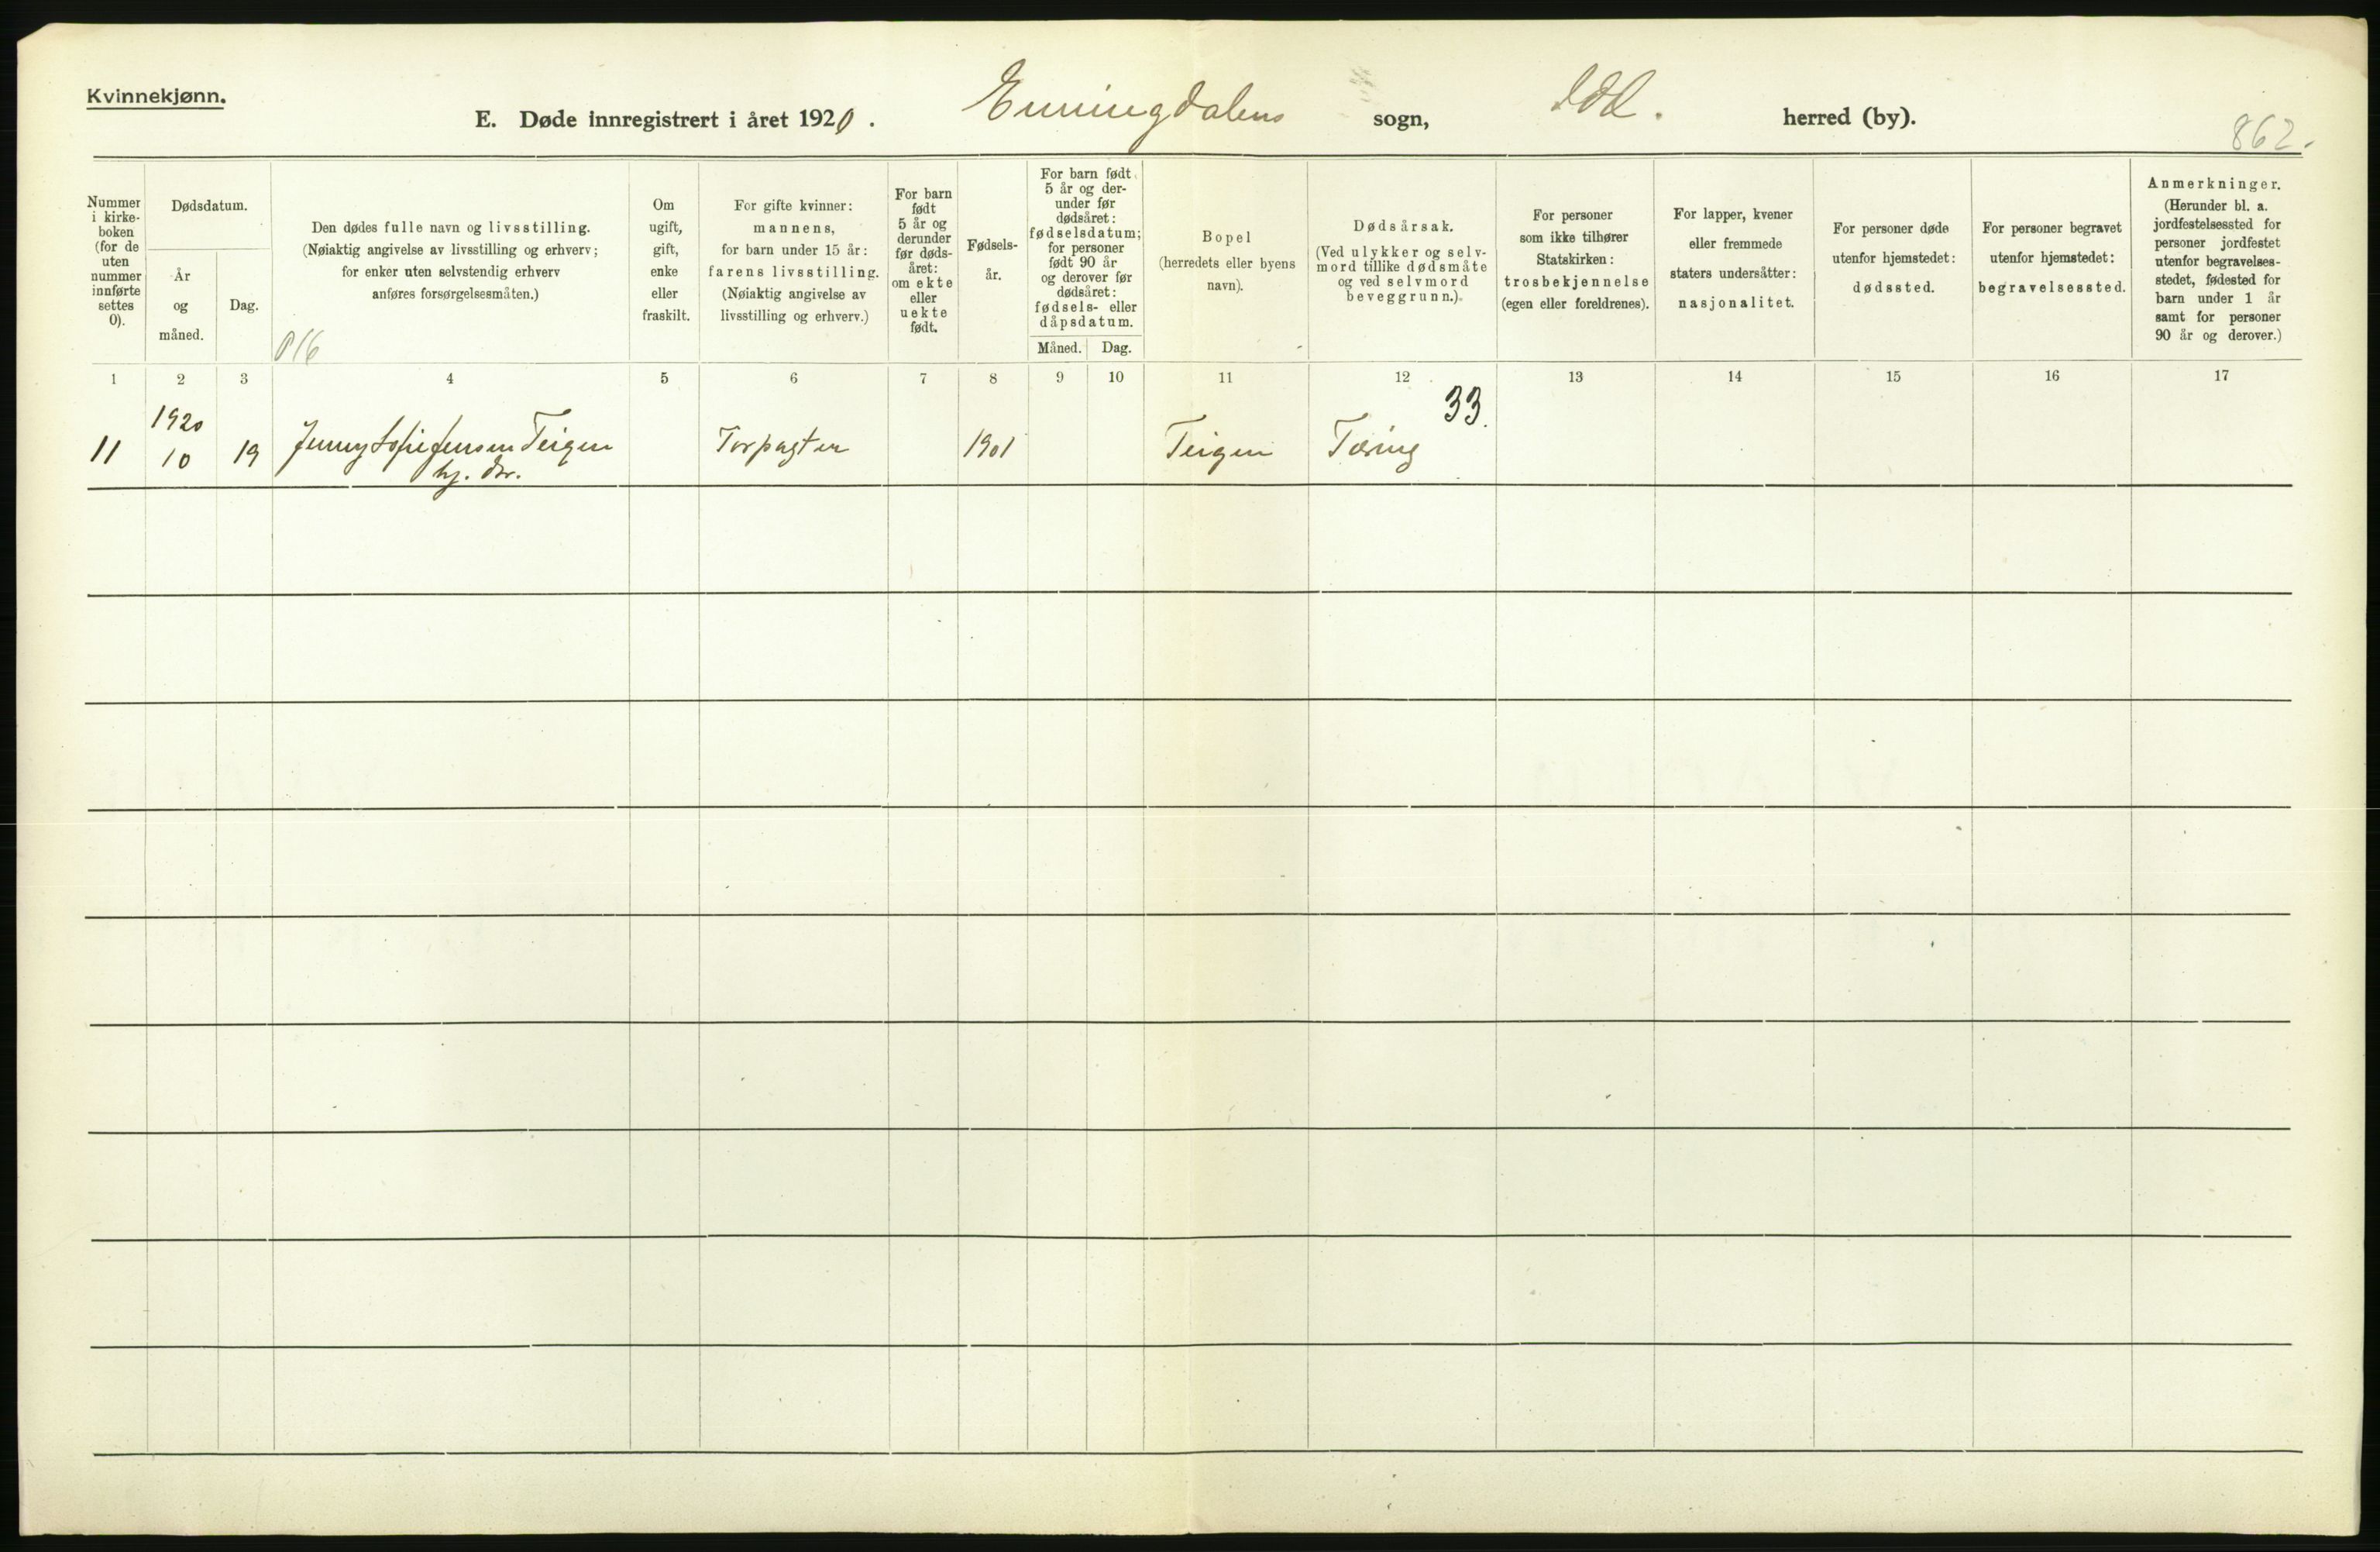 Kvinnekjønn.
E. Døde innregistrert i året 1920. Enningdalens sogn, Idd. herred (by).
862.
Nummer i kirke-boken (for de uten nummer innførte settes 0).
Dødsdatum.
År og måned.
Dag.
Den dødes fulle navn og livsstilling.
(Nøiaktig angivelse av livsstilling og erhverv;
for enker uten selvstendig erhverv
anføres forsørgelsesmåten.)
Om
ugift,
gift,
enke
eller
fraskilt.
For gifte kvinner:
mannens,
for barn under 15 år:
farens livsstilling.
(Nøiaktig angivelse av
livsstilling og erhverv.)
For barn
født
5 år og
derunder
før døds-
året:
om ekte
eller
uekte
født.
Fødsels-
år.
For barn født
5 år og der-
under før
dødsåret:
fødselsdatum;
for personer
født 90 år
og derover før
dødsåret:
fødsels- eller
dåpsdatum.
Måned. Dag.
Bopel
(herredets eller byens
navn).
Dødsårsak.
(Ved ulykker og selv-
mord tillike dødsmåte
og ved selvmord
beveggrunn.)
For personer
som ikke tilhører
Statskirken:
trosbekjennelse
(egen eller foreldrenes).
For lapper, kvener
eller fremmede
staters undersåtter:
nasjonalitet.
For personer døde
utenfor hjemstedet:
dødssted.
For personer begravet
utenfor hjemstedet:
begravelsessted.
Anmerkninger.
(Herunder bl. a.
jordfestelsessted for
personer jordfestet
utenfor begravelses-
stedet, fødested for
barn under 1 år
samt for personer
90 år og derover.)
1 2 3 4 5 6 7 8 9 10 11 12 13 14 15 16 17
1920 33.
11 10 19 Jenny Sofie Jensen Teigen Forpagter 1901 Teigen Tæring
hj. dtr.